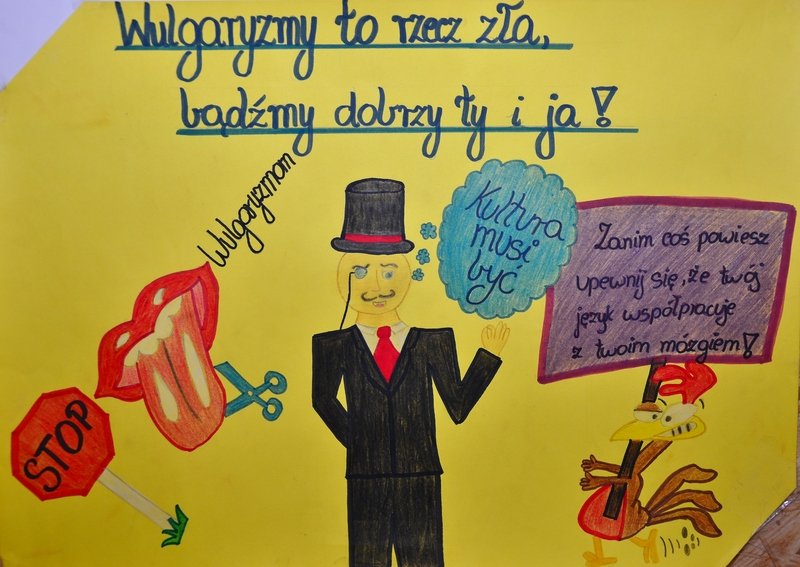 Wulgaryzmy to rzecz zła,
bądźmy dobrzy ty i ja!
STOP
Wulgaryzmom
Kultura
musi
być
Zanim coś powiesz
upewnij się, że twój
język współpracuje
z twoim mózgiem!